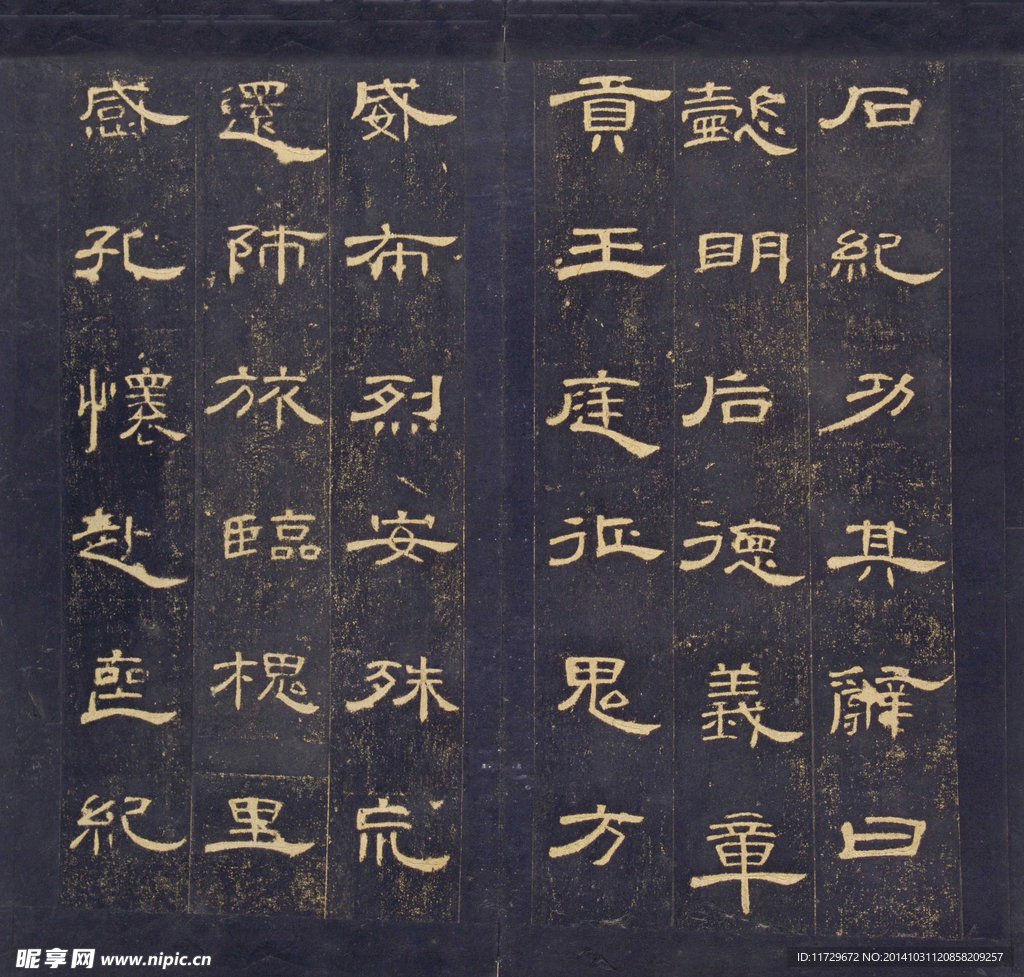 石紀功其辭曰
懿明后德義章
貢王庭征鬼方
威布烈安殊荒
還師旅臨槐里
感孔懷赴喪紀
昵享网 www.nipic.cn
ID:11729672 NO:20141031120858209257